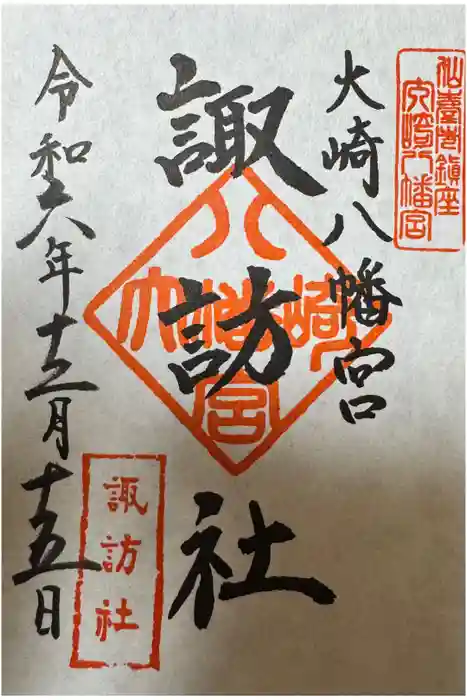 仙臺鎮座
大崎八幡宮
大崎八幡宮
諏訪社
大崎八幡宮
令和六年十二月十五日
諏訪社